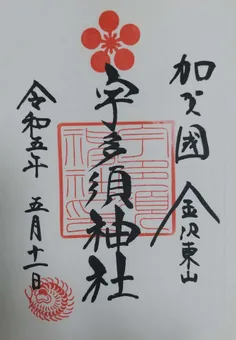 加賀國
金沢東山
宇多須神社
令和五年 五月十二日